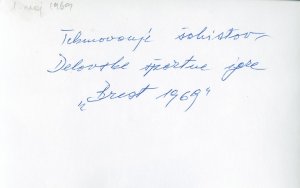 maj 1969
Tekmovanje šahistov,
Delavske športne igre
"Brest 1969"